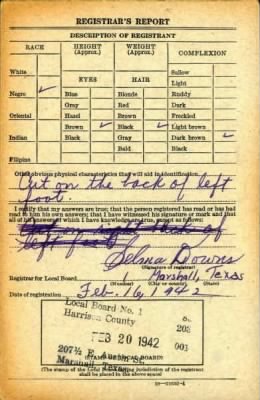 REGISTRAR'S REPORT
DESCRIPTION OF REGISTRANT
RACE HEIGHT (Approx.) WEIGHT (Approx.) COMPLEXION
White Sallow
EYES HAIR Light
Negro ✓ Blue Blonde Ruddy
Gray Red Dark
Oriental Hazel Brown Freckled
Brown ✓ Black ✓ Light brown
Indian Black Gray Dark brown ✓
Bald Black
Filipino
Other obvious physical characteristics that will aid in identification
Cut on the back of left
foot.
I certify that my answers are true; that the person registered has read or has had
read to him his own answers; that I have witnessed his signature or mark and that
all of his answers of which I have knowledge are true, except as follows:
Cut on right back of
left foot
Selma Downs
(Signature of registrar)
Registrar for Local Board 1 Marshall, Texas
(Number) (City or county) (State)
Date of registration Feb. 16, 1942
Local Board No. 1
Harrison County
203
FEB 20 1942 001
207½ E. Austin St.
Marshall, Texas
(STAMP OF LOCAL BOARD)
(The stamp of the Local Board having jurisdiction of the registrant
shall be placed in the above space)